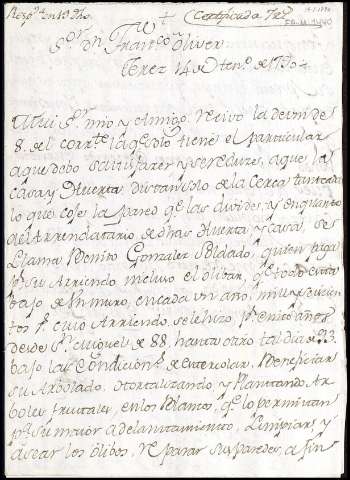 Resp.ta en 19 dho.
(Certificada
S.or Dn Fran.co Oliver
Xerez 14 de 1790
Mui S.r mio y Amigo. Recivo la de vm de
8. del corr.te la q.e solo tiene el particular
a que debo satisfazer y se reduze, a que las
casa, y Huerta, distan solo de la Cerca
lo que coje la pared q.e las divide, y en quanto
del Arrendatario de dhas Huerta y casa, se
Llama Benito Gonzalez Soldado, quien paga
p.r su Arriendo incluso el olibar, q.e todo esta
bajo de un muro, en cada un año, mil y
tos r.s cuio Arriendo se le hizo p.r
desde S.n Miguel de 88. hasta otro tal dia de 93.
bajo las Condicion.s de enterolar, Beneficiar
su Arbolado, Hortalizando y Plantando Ar
boles frutales, en los Blancos, q.e lo permitan
p.a su maior adelantamiento, Limpiar, y
asear los olibos, Reparar sus paredes, a fin